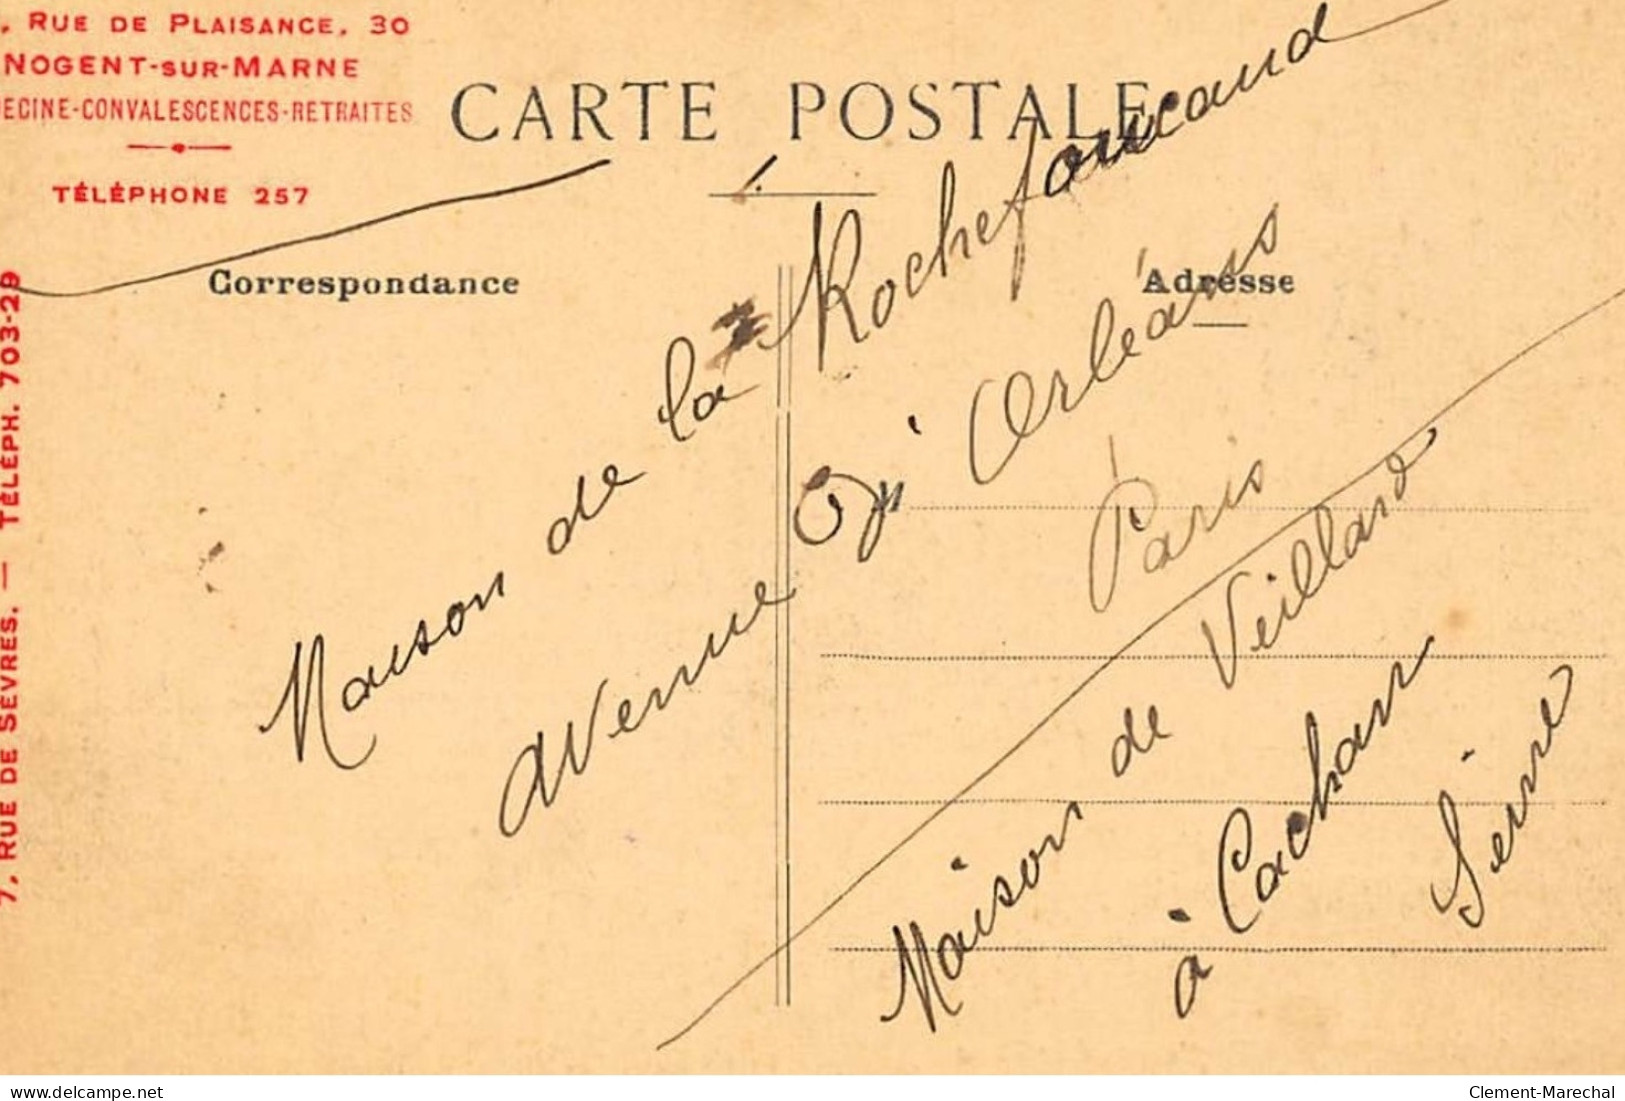 , RUE DE PLAISANCE, 30
NOGENT-SUR-MARNE
ECINE-CONVALESCENCES-RETRAITES
TÉLÉPHONE 257
CARTE POSTALE
Correspondance
Adresse
7, RUE DE SÈVRES. — TÉLÉPH. 703-29
Maison de la Rochefoucaud
Avenue d'Orléans
Paris
Maison de Veillard
à Cachan
Seine
delcampe.net
Clement-Marechal